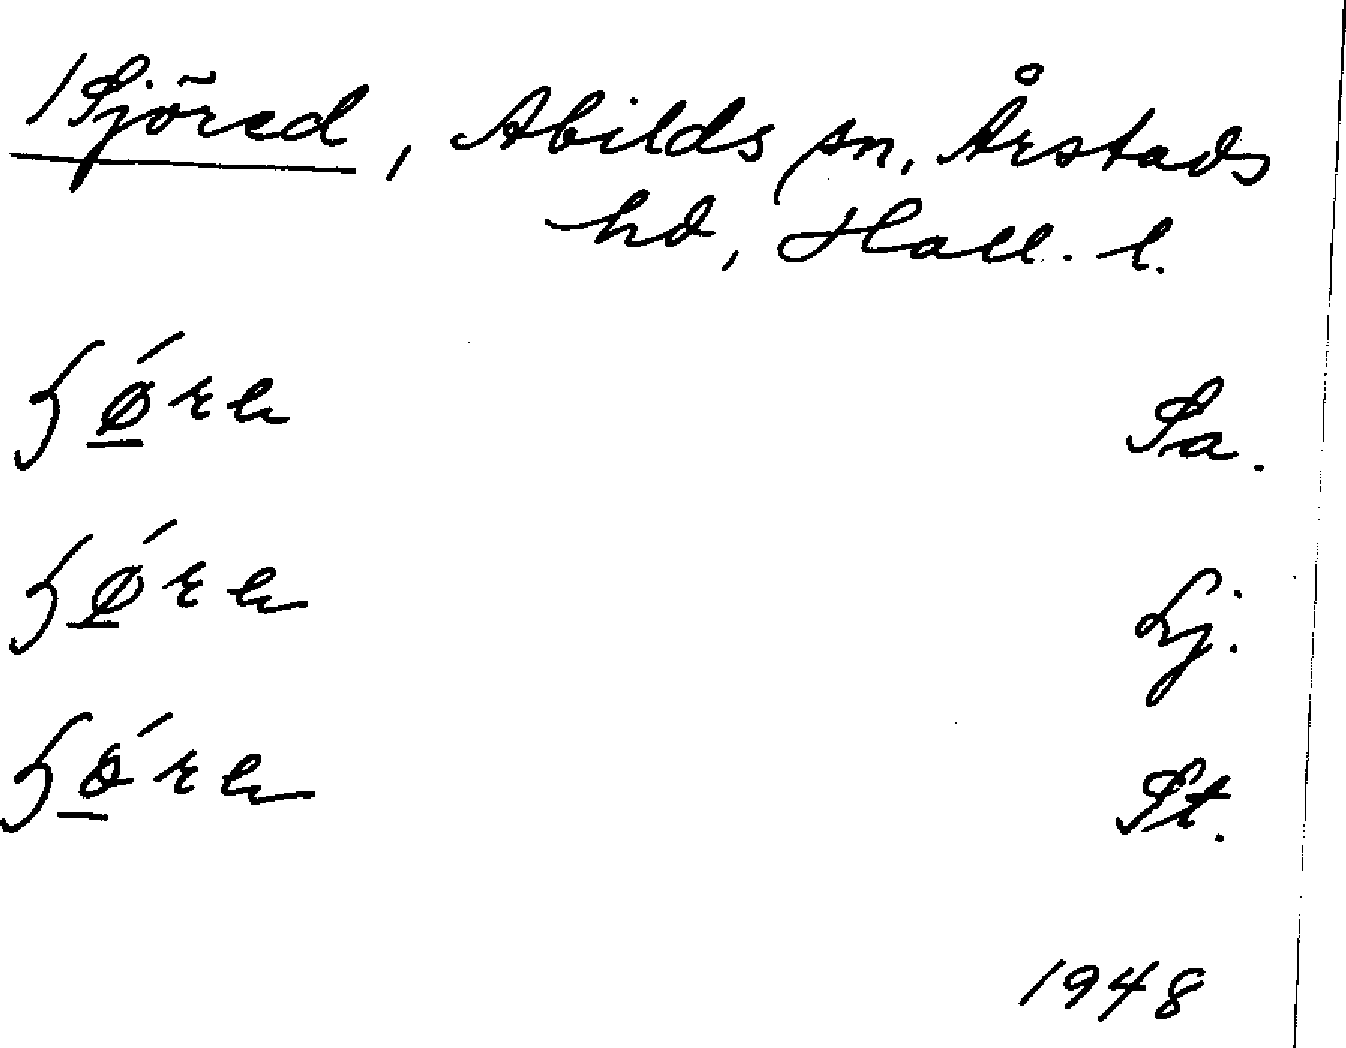 /Sjöred, Abilds sn, Årstads
hd, Hall. l.
ɧǿ̲re Sa.
ɧǿ̲re Lj.
ɧǿ̲re St.
1948